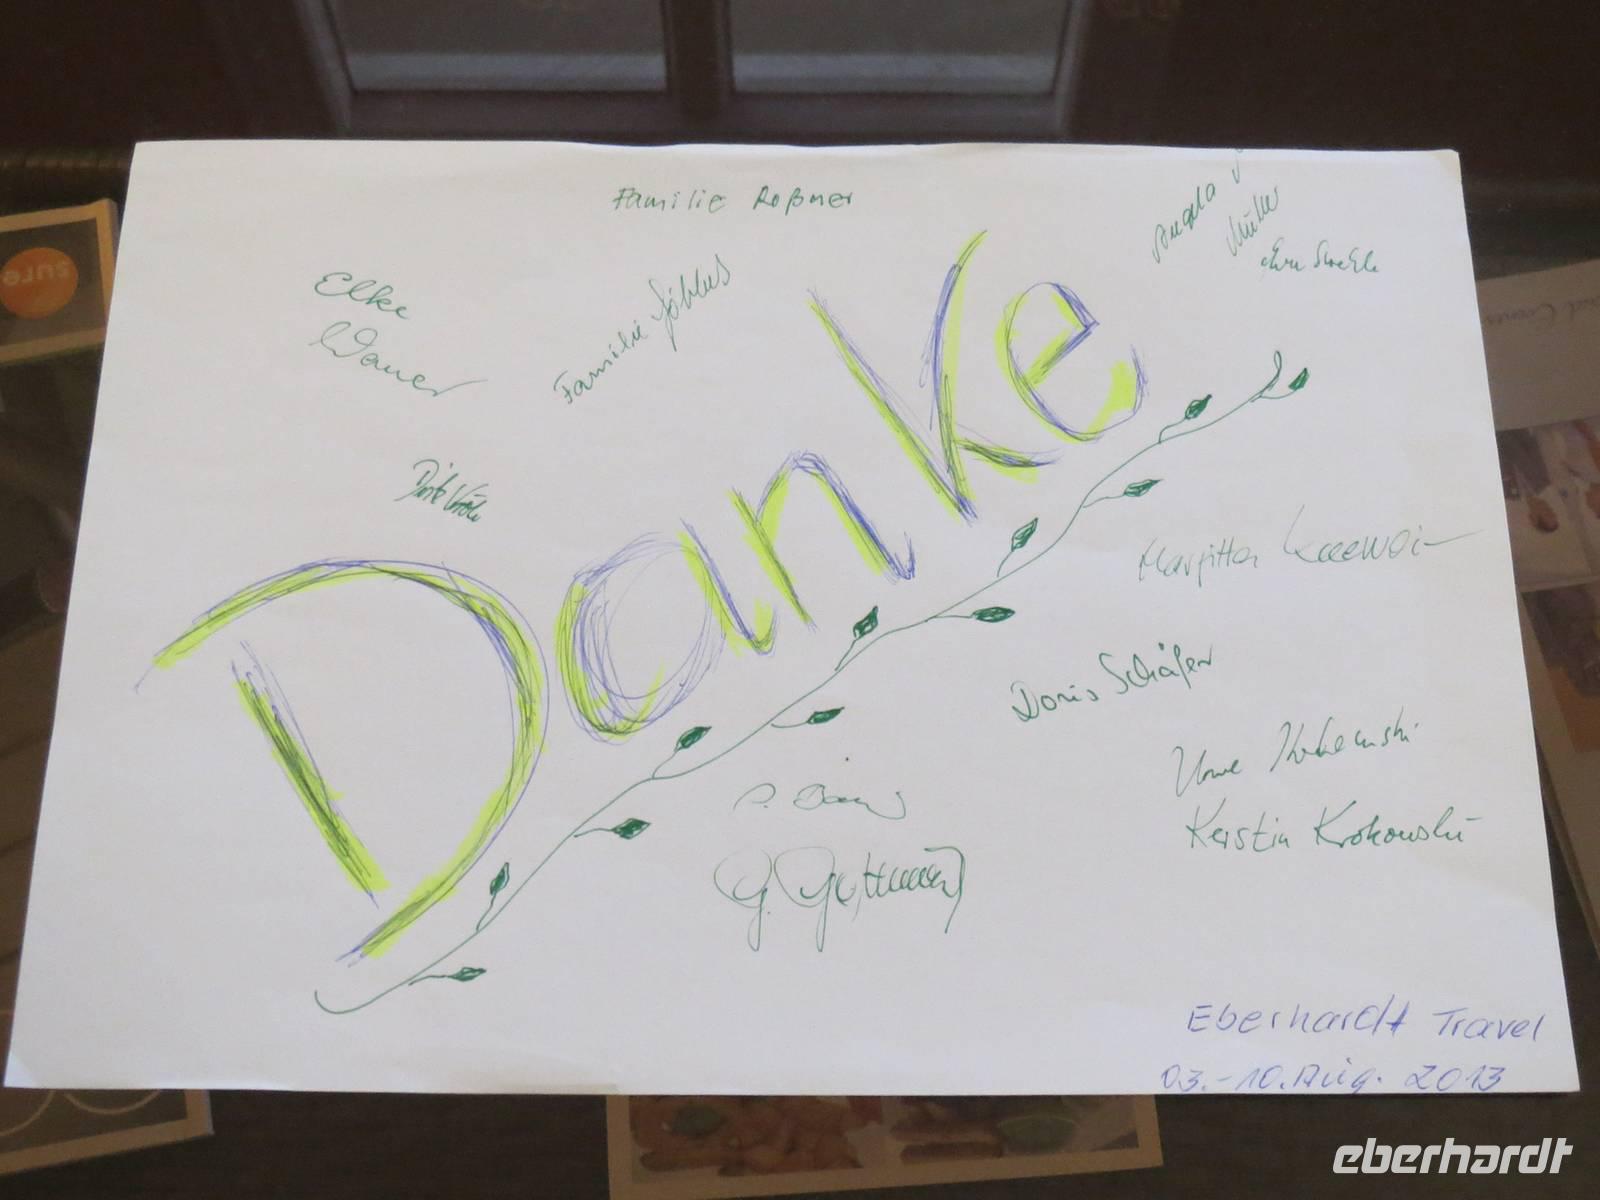 Familie Roßner
Angela
Müller
Elke
Wauer
Familie
Danke
Margitta
Doris Schäfer
Uwe Krokowski
Kerstin Krokowski
G.
Eberhardt Travel
03.-10. Aug. 2013
eberhardt
sure